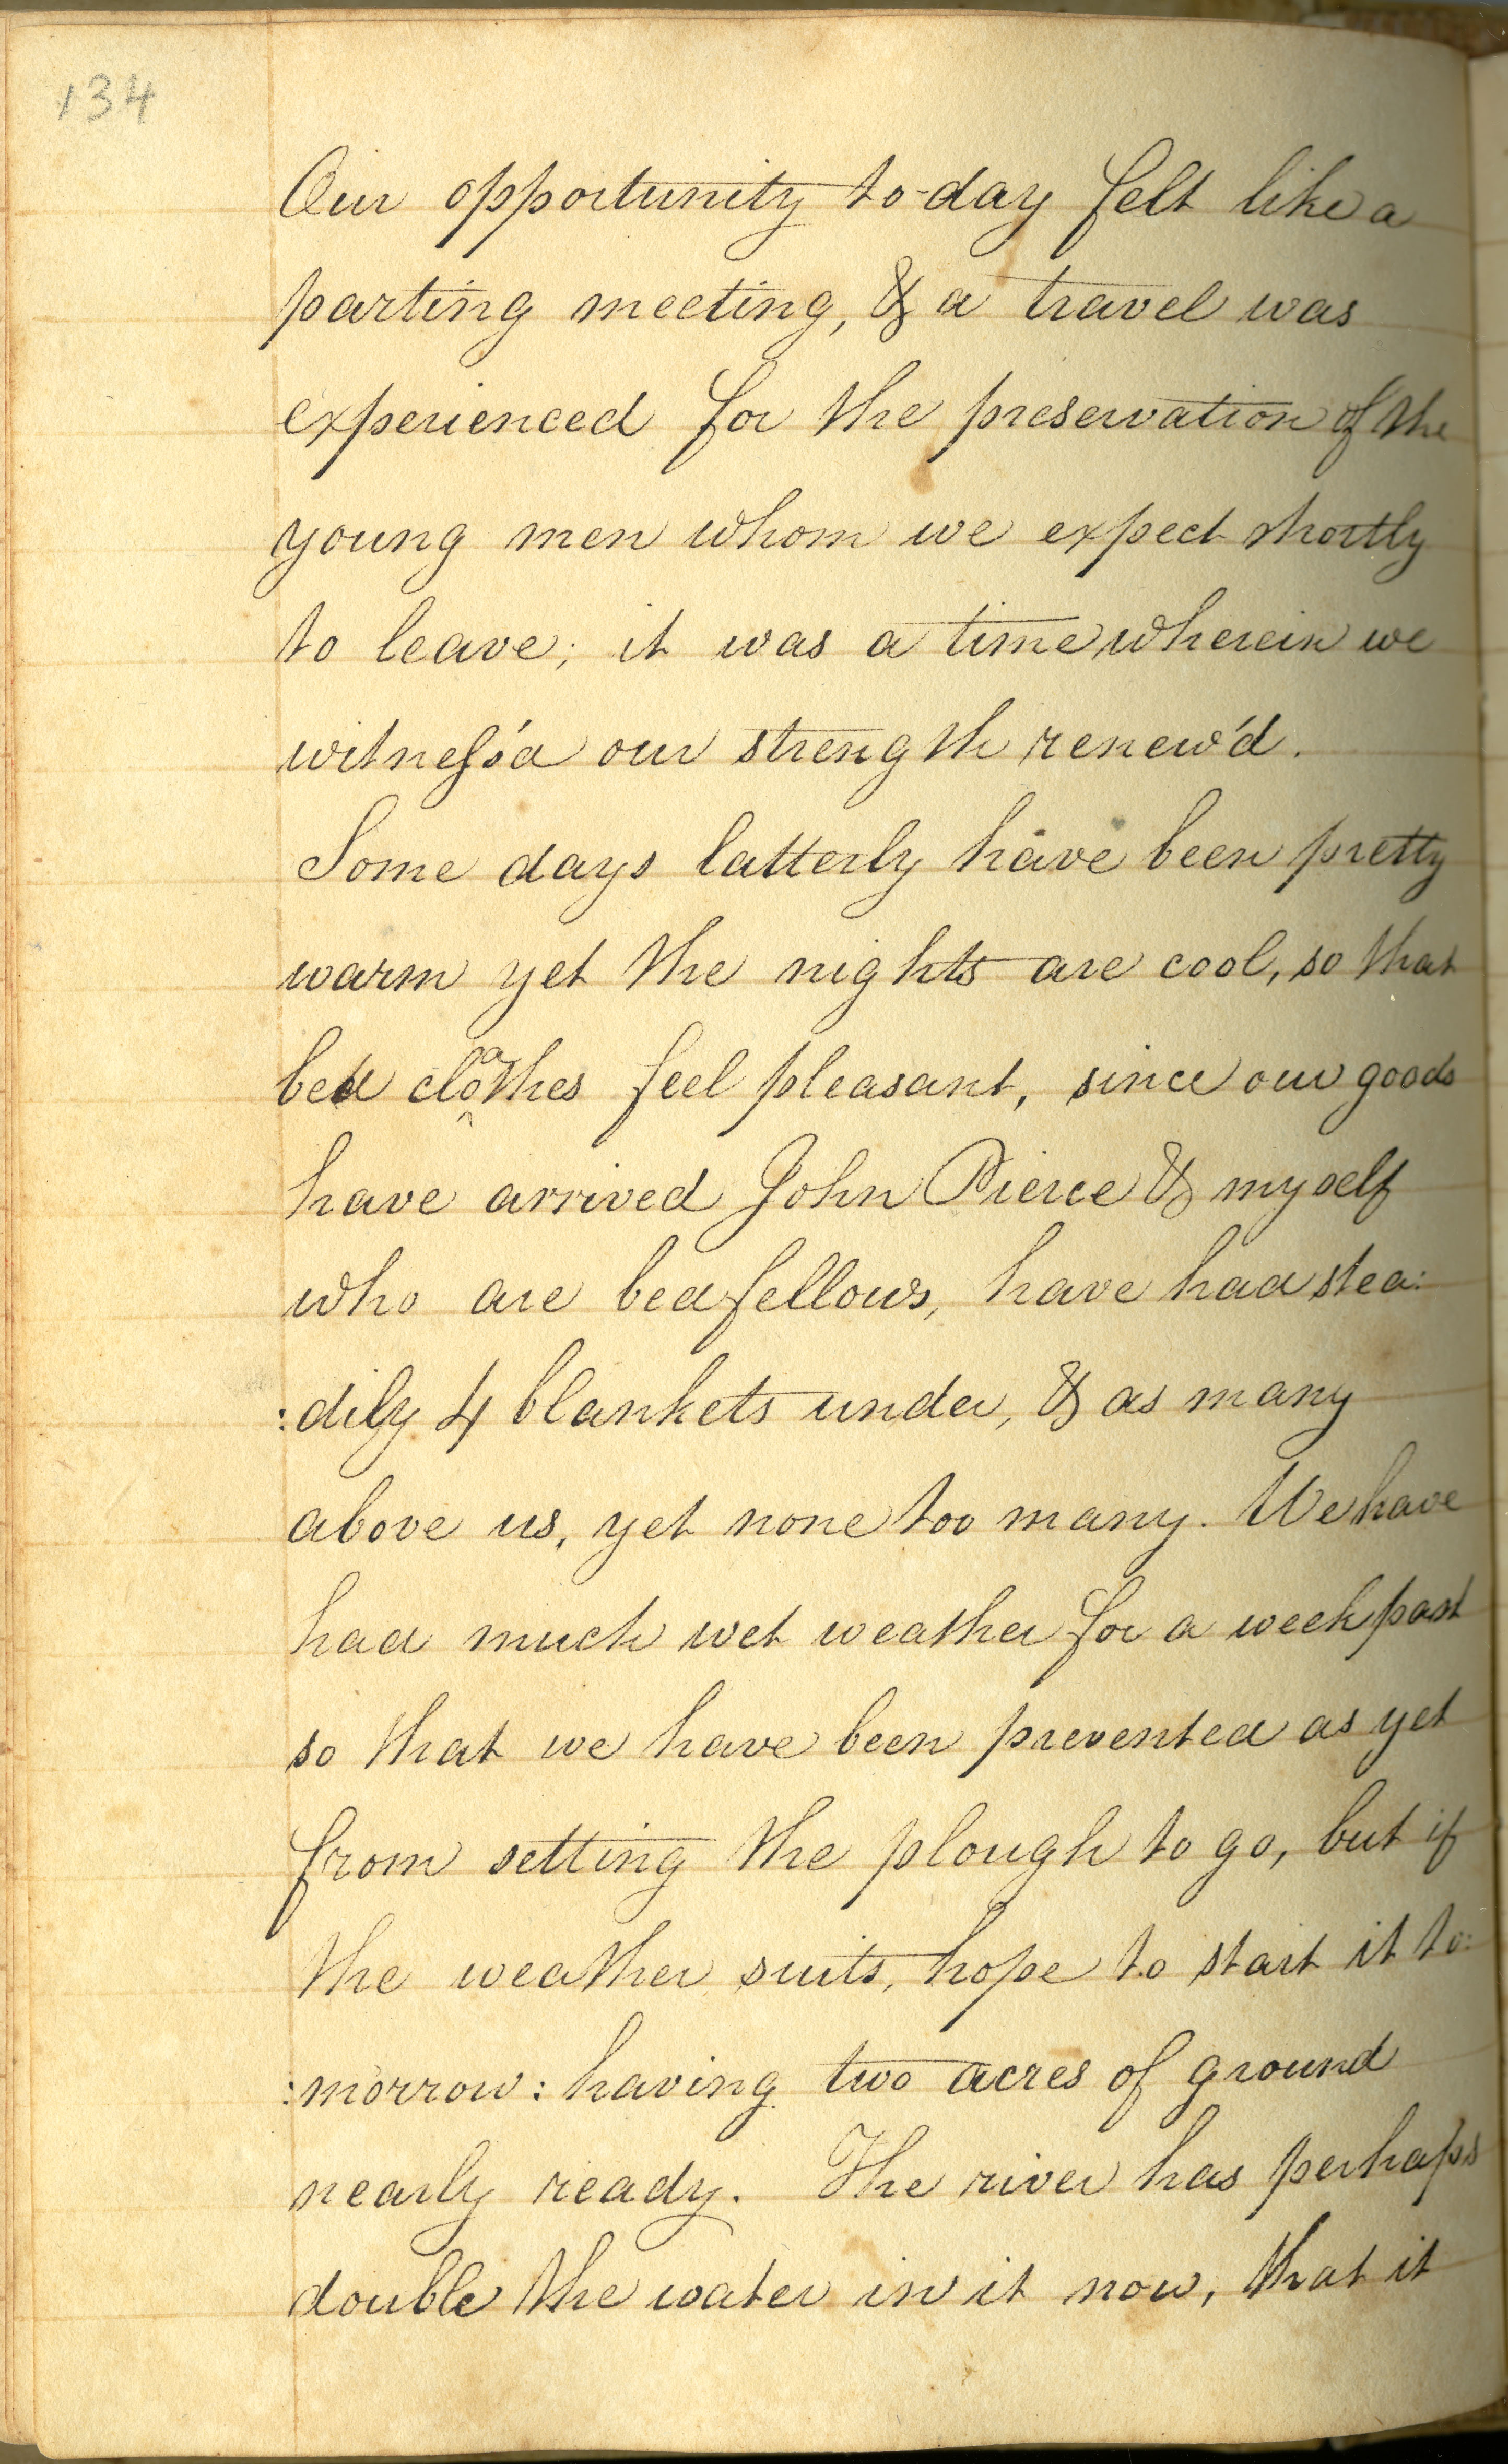 134
Our opportunity to-day felt like a
parting meeting, & a travel was
experienced for the preservation of the
young men whom we expect shortly
to leave; it was a time wherein we
witneſs'd our strength renew'd.
Some days latterly have been pretty
warm yet the nights are cool, so that
bed cloathes feel pleasant, since our goods
have arrived John Pierce & myself
who are bedfellows, have had stea:
:dily 4 blankets under, & as many
above us, yet none too many. We have
had much wet weather for a week past
so that we have been prevented as yet
from setting the plough to go, but if
the weather suits, hope to start it to:
:morrow: having two acres of ground
nearly ready. The river has perhaps
double the water in it now, that it